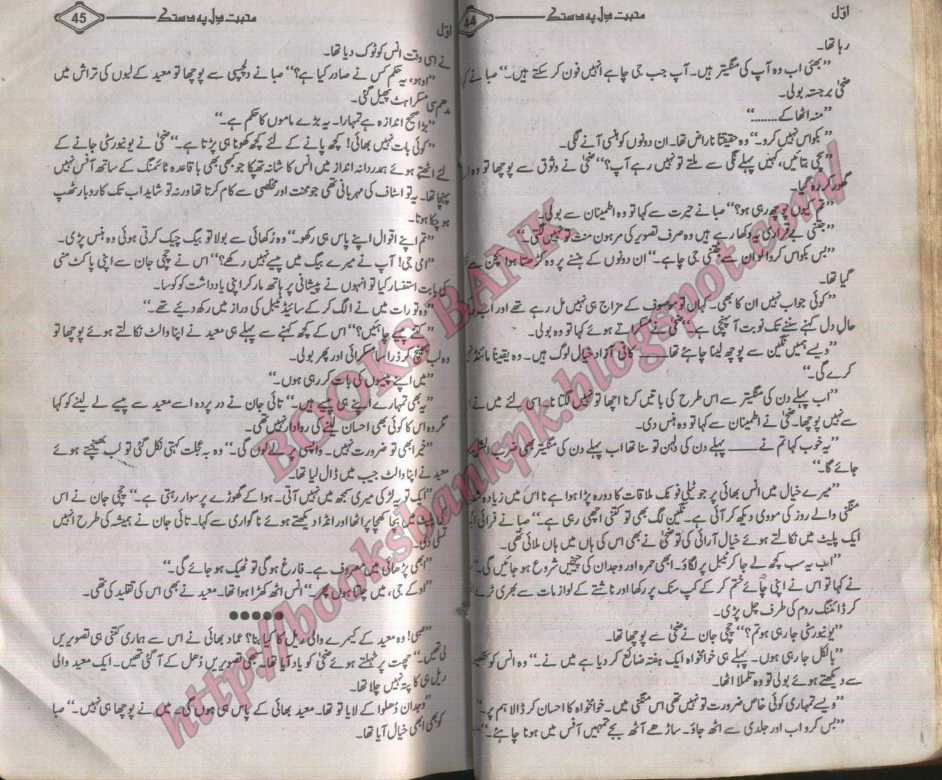 اوّل
محبت دل پہ دستک
44
رہا تھا۔
”بھئی اب وہ آپ کی منگیتر ہیں۔ آپ جب جی چاہے انہیں فون کر سکتے ہیں۔“ صبا نے کہا
ضحٰی برجستہ بولی۔
”منہ اٹھا کے........“
”بکواس نہیں کرو۔“ وہ حقیقتاً ناراض تھا۔ ان دونوں کو ہنسی آنے لگی۔
”سچی بتائیں، کہیں پہلے نگی سے ملتے تو نہیں رہے آپ؟“ ضحٰی نے وثوق سے پوچھا تو وہ
گھور کر رہ گیا۔
”تم کیوں پوچھ رہی ہو؟“ صبا نے حیرت سے کہا تو وہ اطمینان سے بولی۔
”جتنی بے قراری یہ دکھا رہے ہیں وہ صرف تصویر کی مرہون منت تو نہیں لگتی۔“
”بس بکواس کروا لو ان سے جتنی جی چاہے۔“ ان دونوں کے ہنسنے پر وہ
گیا تھا۔
”کوئی جواب نہیں ان کا بھی۔ کہاں تو موصوف کے مزاج ہی نہیں مل رہے تھے اور اب
حالِ دل کہنے سننے تک نوبت آ پہنچی ہے۔“ ضحٰی نے مسکراتے ہوئے کہا تو وہ بولی۔
”ویسے ہمیں نگین سے پوچھ لینا چاہئے تھا____ کافی آزاد خیال لوگ ہیں۔ وہ یقیناً مائنڈ
کرے گی۔“
”اب پہلے دن کی منگیتر سے اس طرح کی باتیں کرنا اچھا تو نہیں لگتا نا۔ اسی لئے میں نے
سے نہیں پوچھا۔ ضحٰی نے اطمینان سے کہا تو وہ ہنس دی۔
”یہ خوب کہا تم نے____ پہلے دن کی دلہن تو سنا تھا اب پہلے دن کی منگیتر بھی ضرب المثل
جائے گا۔“
”میرے خیال میں انس بھائی پر جو ٹیلی فونک ملاقات کا دورہ پڑا ہوا ہے نا اس میں زیادہ
منگنی والے روز کی مووی دیکھ کر آئی ہے۔ نگین لگ بھی تو کتنی اچھی رہی ہے۔“ صبا نے فرائی
ایک پلیٹ میں نکالتے ہوئے خیال آرائی کی تو ضحٰی نے بھی اس کی ہاں میں ہاں ملائی تھی۔
”اب یہ سب کچھ لے جا کر ٹیبل پر لگاؤ۔ ابھی حمرہ اور وجدان کی چیخیں شروع ہو جائیں گی۔“
نے کہا تو اس نے اپنی چائے ختم کر کے کپ سنک پر رکھا اور ناشتے کے لوازمات سے بھری ٹرے
کر ڈائننگ روم کی طرف چل پڑی۔
”یونیورسٹی جا رہی ہو تم؟“ چچی جان نے ضحٰی سے پوچھا تھا۔
”بالکل جا رہی ہوں۔ پہلے ہی خوامخواہ ایک ہفتہ ضائع کر دیا ہے میں نے۔“ وہ انس کو
سے دیکھتے ہوئے بولی تو وہ تلملا اٹھا۔
”ویسے تمہاری کوئی خاص ضرورت تو نہیں تھی اس منگنی میں۔ خوامخواہ کا احسان کر ڈالا ہم پر۔“
”بس کرو اب اور جلدی سے اٹھ جاؤ۔ ساڑھے آٹھ بجے تمہیں آفس میں ہونا چاہئے۔“
اوّل
محبت دل پہ دستک
45
نے اسی وقت انس کو ٹوک دیا تھا۔
”اوہو، یہ حکم کس نے صادر کیا ہے؟“ صبا نے دلچسپی سے پوچھا تو معید کے لبوں کی تراش میں
مدھم سی مسکراہٹ پھیل گئی۔
”بڑا صحیح اندازہ ہے تمہارا۔ یہ بڑے ماموں کا حکم ہے۔“
”کوئی بات نہیں بھائی! کچھ پانے کے لئے کچھ کھونا ہی پڑتا ہے۔“ ضحٰی نے یونیورسٹی جانے کے
لئے اٹھتے ہوئے ہمدردانہ انداز میں انس کا شانہ تھپکا جو کبھی بھی باقاعدہ ٹائمنگ کے ساتھ آفس نہیں
پہنچا تھا۔ یہ تو اسٹاف کی مہربانی تھی جو محنت اور مخلصی سے کام کرتا تھا ورنہ تو شاید اب تک کاروبار ٹھپ
ہو چکا ہوتا۔
”تم اپنے اقوال اپنے پاس ہی رکھو۔“ وہ رُکھائی سے بولا تو بیگ چیک کرتی ہوئی وہ ہنس پڑی۔
”امی جی! آپ نے میرے بیگ میں پیسے نہیں رکھے؟“ اس نے چچی جان سے اپنی پاکٹ منی
کی بابت استفسار کیا تو انہوں نے پیشانی پر ہاتھ مار کر اپنی یادداشت کو کوسا۔
”وہ تو رات میں نے الگ کر کے سائیڈ ٹیبل کی دراز میں رکھ دیئے تھے۔“
”کتنے پیسے چاہئیں؟“ اس کے کچھ کہنے سے پہلے ہی معید نے اپنا والٹ نکالتے ہوئے پوچھا تو
وہ لب بھینچ کر ذرا سا مسکرائی اور پھر بولی۔
”میں اپنے پیسوں کی بات کر رہی ہوں۔“
”یہ بھی تمہارے اپنے ہی پیسے ہیں۔“ تائی جان نے در پردہ اسے معید سے پیسے لے لینے کو کہا
مگر وہ اس کا کوئی بھی احسان لینے کی روادار نہیں تھی۔
”خیر ابھی تو ضرورت نہیں۔ واپسی پر لے لوں گی۔“ وہ بہ عجلت کہتی نکل گئی تو لب بھینچتے ہوئے
معید نے اپنا والٹ جیب میں ڈال لیا تھا۔
”ایک تو یہ لڑکی میری سمجھ میں نہیں آتی۔ ہوا کے گھوڑے پر سوار رہتی ہے۔“ چچی جان نے اس
کی پلیٹ میں بچا کھچا پراٹھا اور انڈا دیکھتے ہوئے ناگواری سے کہا۔ تائی جان نے ہمیشہ کی طرح انہیں
تسلی دی۔
”ابھی پڑھائی میں مصروف ہے۔ فارغ ہو گی تو ٹھیک ہو جائے گی۔“
”او کے جی، میں چلتا ہوں پھر۔“ انس اٹھ کھڑا ہوا تھا۔ معید نے بھی اس کی تقلید کی تھی۔
●●●●●
”صبی! وہ معید کے کیمرے والی ریل کا کیا بنا؟ عماد بھائی نے اس سے ہماری کتنی ہی تصویریں
لی تھیں۔“ چھت پر ٹہلتے ہوئے ضحٰی کو یاد آیا تھا۔ سبھی تصویریں دُھل کے آ گئی تھیں۔ ایک معید والی
ریل ہی کا پتہ نہیں چلا تھا۔
”وجدان دُھلوا کے لایا تو تھا۔ معید بھائی کے پاس ہی ہوں گی۔ میں نے پوچھا ہی نہیں۔“ صبا
کو بھی ابھی خیال آیا تھا۔
BOOKS BANK
http://booksbankpk.blogspot.com/